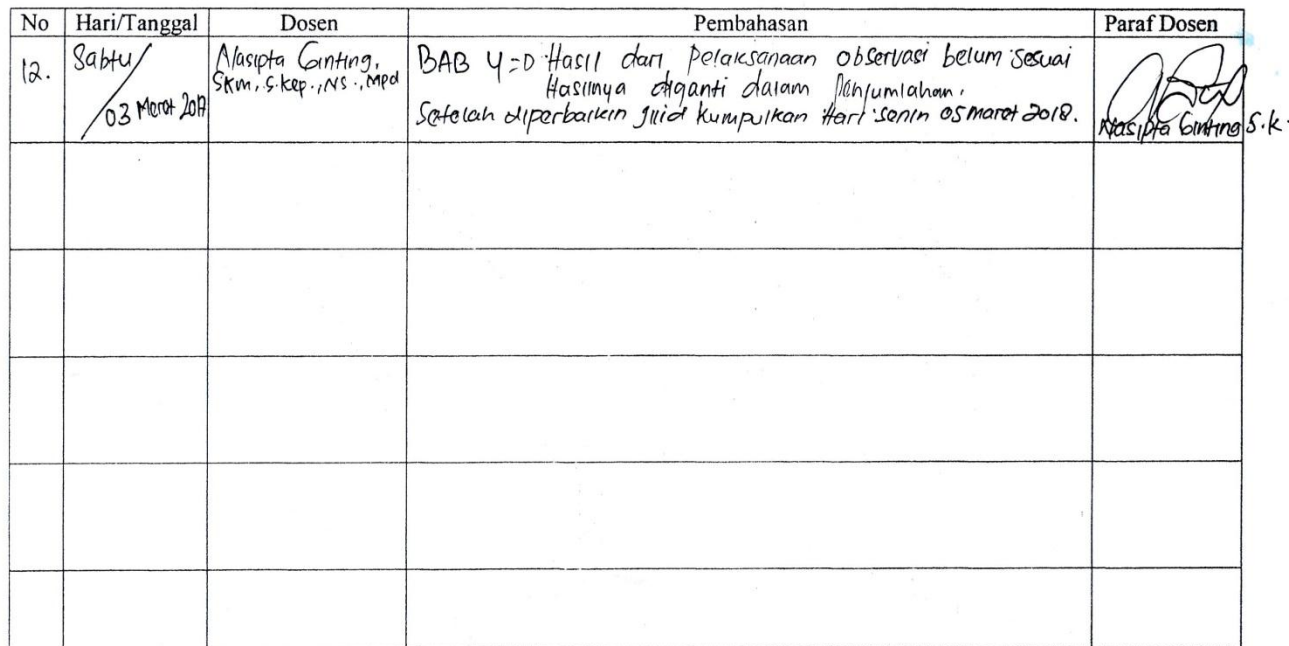 No Hari/Tanggal Dosen Pembahasan Paraf Dosen
12. Sabtu/ 03 Maret 201
Nasipta Ginting,
SKM, S.Kep.,NS., Mpd
BAB 4 => Hasil dari Pelaksanaan observasi belum sesuai
Hasilnya diganti dalam Penjumlahan.
Setelah diperbaikin jilid kumpulkan Hari senin 05 maret 2018.
Nasipta Ginting S.k